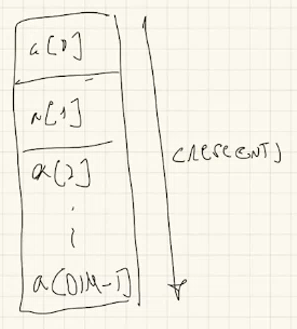 a[0]
a[1]
a[2]
a[DIM-1]
CRESCENTI